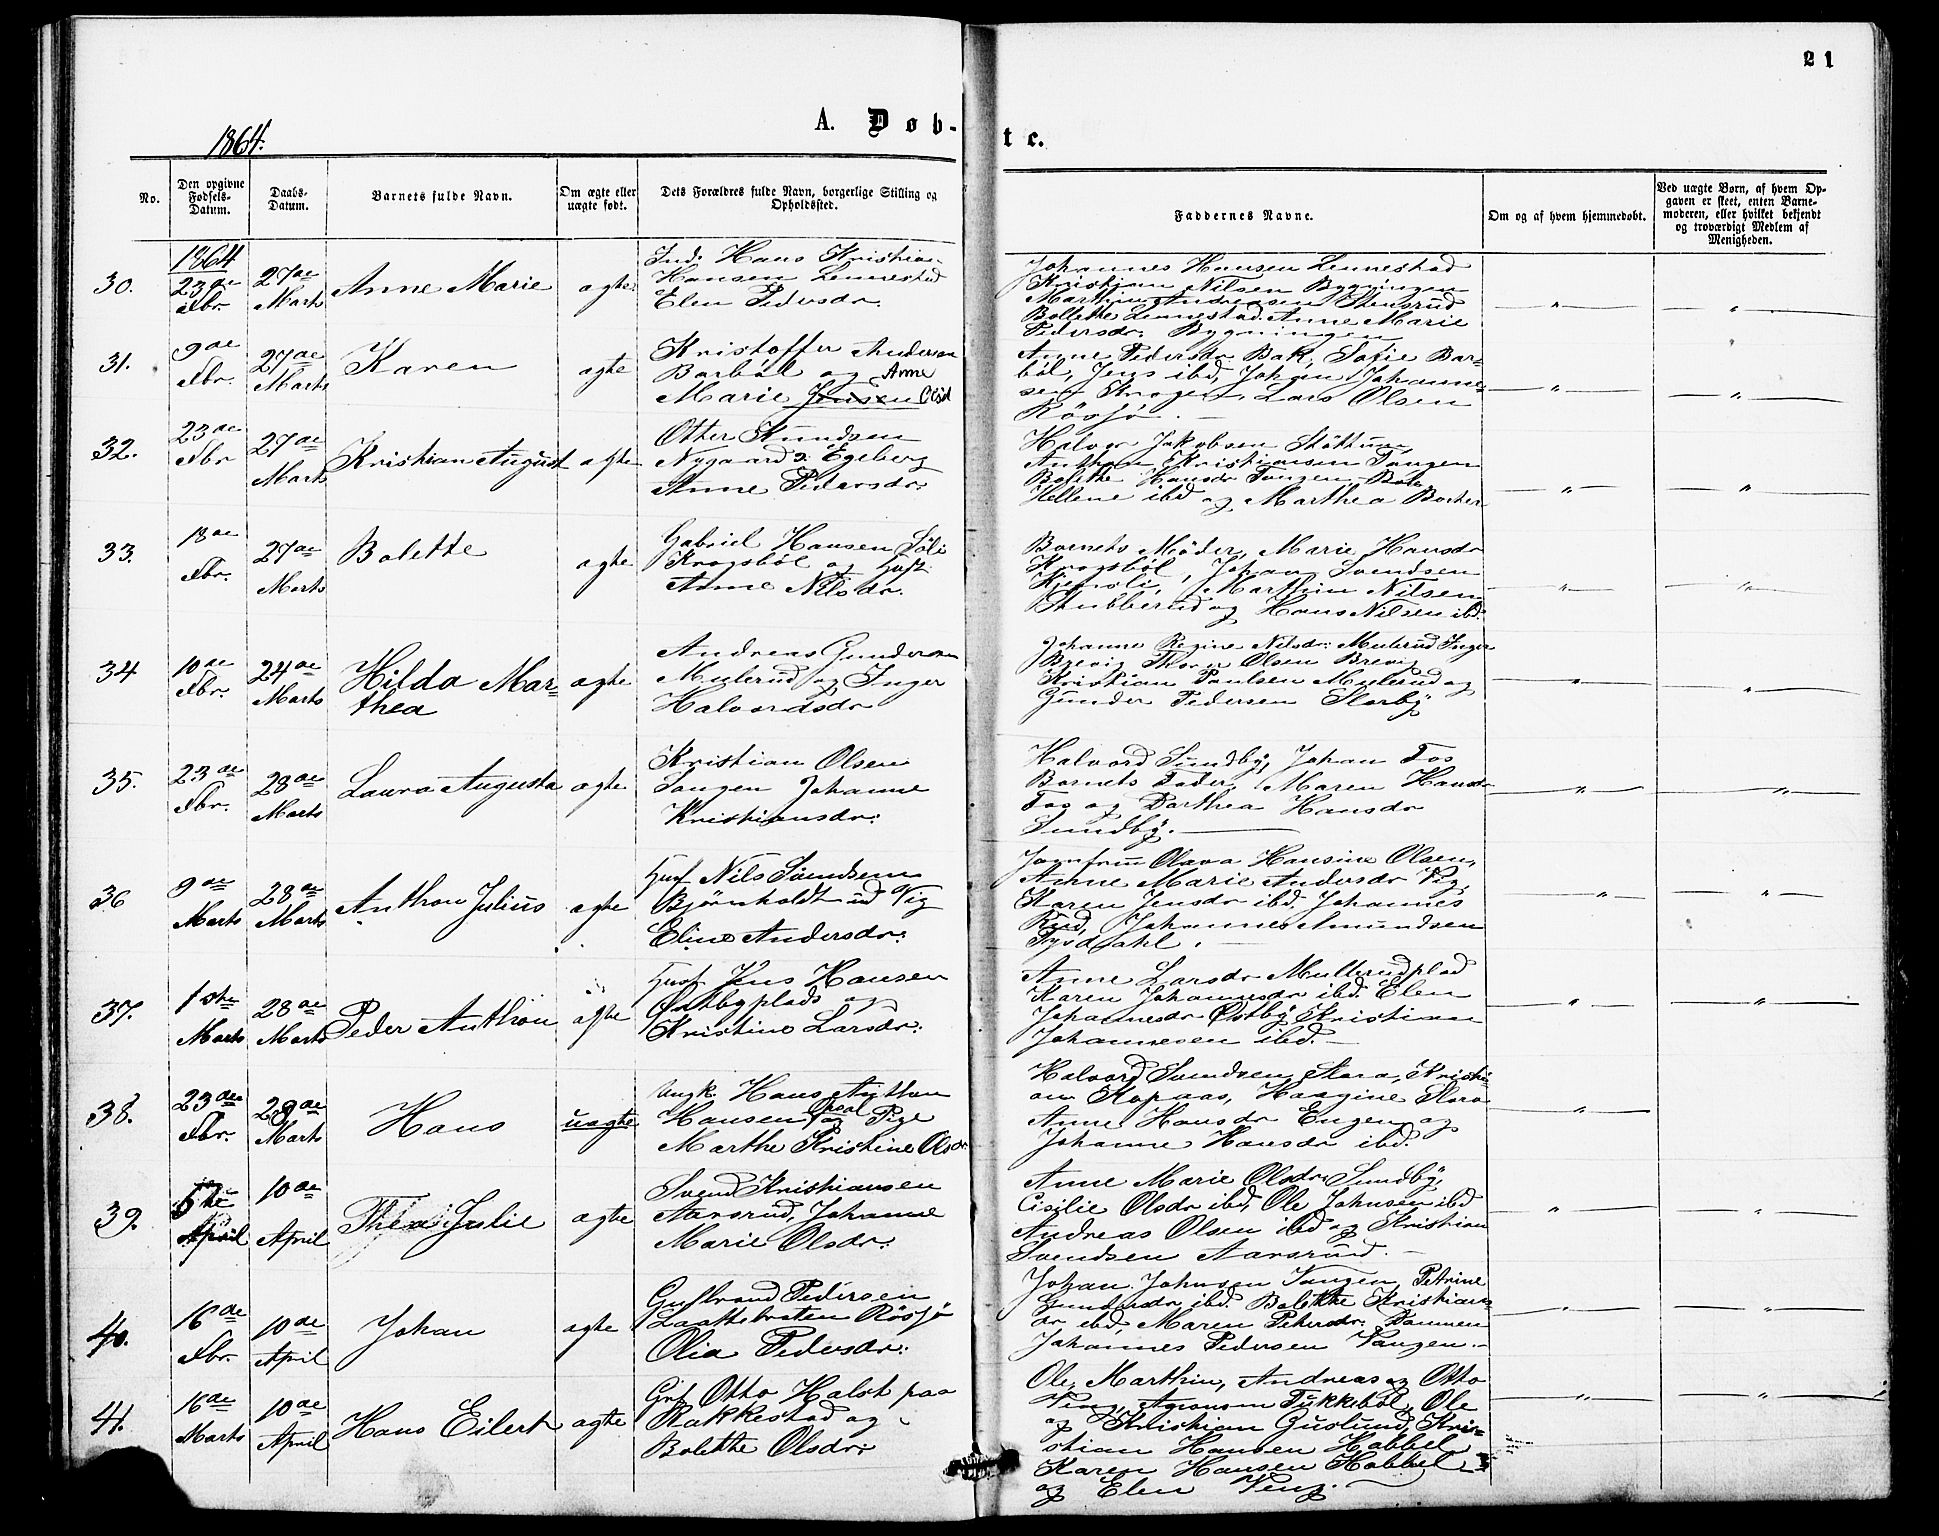 21
A. Døb-
te.
1864.
No.
Den opgivne Fødsels-Datum.
Daabs-Datum.
Barnets fulde Navn.
Om ægte eller uægte født.
Dets Forældres fulde Navn, borgerlige Stilling og Opholdssted.
Faddernes Navne.
Om og af hvem hjemmedøbt.
Ved uægte Børn, af hvem Opgaven er skeet, enten Barnemoderen, eller hvilket bekjendt og troværdigt Medlem af Menigheden.
1864
30. 23de Fbr. 27de Marts Anne Marie ægte
Ind. Hans Kristian
Hansen Lennestad
Elen Pedersdr.
Johannes Hansen Lennestad
Kristian Nilsen Bygningen
Marthin Andreasen Stensrud
Bollethe Lennestad Anne Marie
Pedersdr. Bygningen
31. 9de Fbr. 27de Marts Karen ægte
Kristoffer Anderson
Barbøl og Anne
Marie Jensen Olsd
Anne Pedersdr. Bak, Sofie Bar-
bøl, Jens ibd, Johan Johanne-
sen Krogen, Lars Olsen
Rösjö.
32. 23de Fbr 27de Marts Kristian August ægte
Otter Knudsen
Nygaard Egeberg
Anne Pedersdr.
Halvor Jakobsen Støttum
Anthon Kristiansen Tangen
Bolethe Hansdr Tangen
Hellene ibd og Marthea
33. 18de Fbr. 27de Marts Bolette ægte
Gabriel Hansen Söli
Krogsböl og Hust.
Anne Nilsdr.
Barnets Moder, Marie Hansdr
Krogsböl, Johan Svendsen
Marthin Nilsen
Stubberud og Hans Nilsen ibd.
34 10de Fbr. 24de Marts Hilda Mar-
thea ægte
Andreas Gunderson
Mulerud og Inger
Halvordsdr
Johanne Regine Nilsdr. Mulerud Inger
Brevig Thor Olsen Brevig
Kristian Paulsen Mulerud og
Gunder Pedersen Slorby
35. 23de Fbr. 28de Marts Laura Augusta ægte
Kristian Olsen
Tangen Johanne
Kristiansdr.
Halvord Sundby, Johan Fos
Barnets Fader, Maren Hansdr
Fos og Dorthea Hansdr
Sundby.
36 9de Marts 28de Marts Anthon Julius ægte
Husf Nils Svendsen
Bjørnholdt ud Vig
Eline Andersdr.
Jomfru Olava Hansine Olsen,
Anne Marie Andersdr Vig,
Karen Jensdr ibd. Johannes
Rud, Johannes Amundsen
Tysdahl.
37. 1ste Marts 28de Marts Peder Anthon ægte
Husf Jens Hansen
Østbyplads og
Kristine Larsdr.
Anne Larsdr Mullerudplad
Karen Johannesdr ibd. Elen
Johannesdr Østby Kristian
Johannesen ibd.
38. 23de Fbr. 28de Marts Hans uægte
Ungk. Hans Anthon
Hansen Opsal og Pige
Marthe Kristine Olsdr
Halvord Svendsen Slora, Kristi-
an Kopaas, Hansine Slora
Anne Hansdr Engen og
Johanne Hansdr ibd.
39. April 10de April Thea Julie ægte
Svend Kristiansen
Aarsrud, Johanne
Marie Olsdr.
Anne Marie Olsdr. Sundby,
Cisilie Olsdr ibd, Ole Johnsen ibd
Andreas Olsen ibd og Kristian
Svendsen Aarsrud.
40. 16de Fbr. 10de April Johan ægte
Gulbrand Pedersen
Laattebraten Rösjö
Olia Pedersdr.
Johan Johnsen Vangen, Petrine
Gundersdr ibd. Bolethe Kristians-
dr ibd, Maren Petersdr. Dammen
Johannes Pedersen Vangen.
41. 16de Marts 10de April Hans Eilert ægte
Grf. Otto Halst paa
Rakkestad og
Bolethe Olsdr.
Ole, Marthin, Andreas og Otto
Ving, Tukkebøl, Ole
og Kristian Guslund, Kri-
stian Hansen Habbel
Karen Hansen Habbel
og Elen Ving.